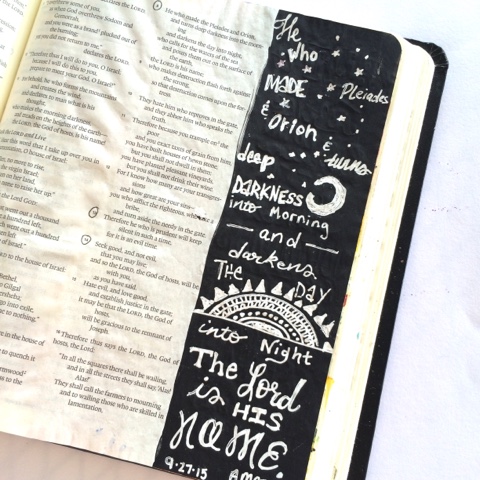 as when God overthrew Sodom and
Gomorrah,
and you were as a brand plucked out of
the burning;
yet you did not return to me,"
declares the LORD.
"Therefore thus I will do to you, O Israel;
because I will do this to you,
prepare to meet your God, O Israel!"
For behold, he who forms the mountains
and creates the wind,
and declares to man what is his
thought,
who makes the morning darkness,
and treads on the heights of the earth—
the LORD, the God of hosts, is his name!
He who made the Pleiades and Orion,
and turns deep darkness into the morn-
ing
and darkens the day into night,
who calls for the waters of the sea
and pours them out on the surface of
the earth,
the LORD is his name;
who makes destruction flash forth against
the strong,
so that destruction comes upon the for-
tress.
They hate him who reproves in the gate,
and they abhor him who speaks the
truth.
Therefore because you trample on the
poor
and you exact taxes of grain from him,
you have built houses of hewn stone,
but you shall not dwell in them;
you have planted pleasant vineyards,
but you shall not drink their wine.
For I know how many are your transgres-
sions
and how great are your sins—
you who afflict the righteous, who take a
bribe,
and turn aside the needy in the gate.
Therefore he who is prudent will keep
silent in such a time,
for it is an evil time.
Seek good, and not evil,
that you may live;
and so the LORD, the God of hosts, will be
with you,
as you have said.
Hate evil, and love good,
and establish justice in the gate;
it may be that the LORD, the God of
hosts,
will be gracious to the remnant of
Joseph.
Therefore thus says the LORD, the God of
hosts, the Lord:
"In all the squares there shall be wailing,
and in all the streets they shall say, 'Alas!
Alas!'
They shall call the farmers to mourning
and to wailing those who are skilled in
lamentation,
He
who
MADE Pleiades
& Orion
& turns
deep
DARKNESS
into Morning
— and —
darkens
THE DAY
into Night
The Lord
is HIS
NAME.
9·27·15 Amos